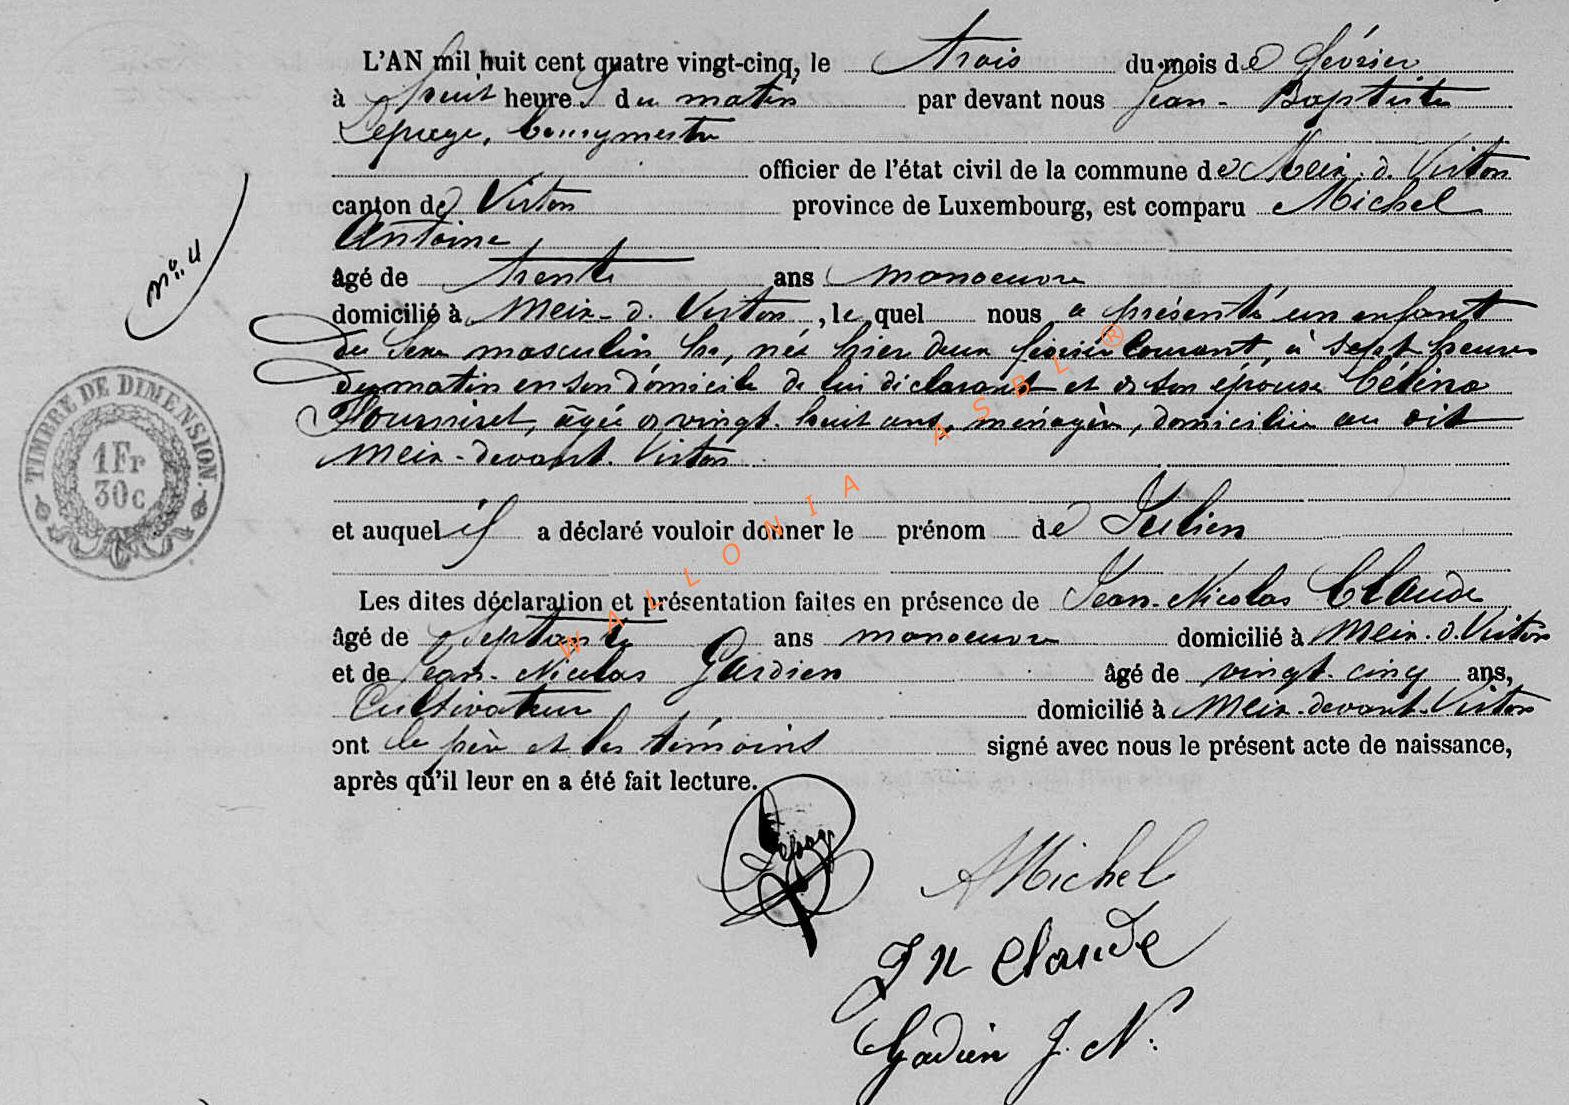 L'AN mil huit cent quatre vingt-cinq, le trois du mois de février
à huit heures du matin par devant nous Jean-Baptiste
Lepage, bourgmestre
officier de l'état civil de la commune de Meix-d. Virton
canton de Virton province de Luxembourg, est comparu Michel
Antoine
âgé de trente ans manoeuvre
domicilié à Meix-d. Virton, le quel nous a présenté un enfant
du sexe masculin, né hier deux février courant, à sept heures
du matin en son domicile de lui déclarant et de son épouse Célina
âgée de vingt-huit ans, ménagère, domiciliée au dit
Meix-devant-Virton
et auquel il a déclaré vouloir donner le prénom de Julien
Les dites déclaration et présentation faites en présence de Jean-Nicolas Claude
âgé de septante ans manoeuvre domicilié à Meix-d. Virton
et de Jean-Nicolas Gardien âgé de vingt-cinq ans,
Cultivateur domicilié à Meix-devant-Virton
ont le père et les témoins signé avec nous le présent acte de naissance,
après qu'il leur en a été fait lecture.
N° 4
TIMBRE DE DIMENSION.
1 Fr
30 c
WALLONIA ASBL ®
Lepage
A Michel
J N Claude
Gardien J. N.